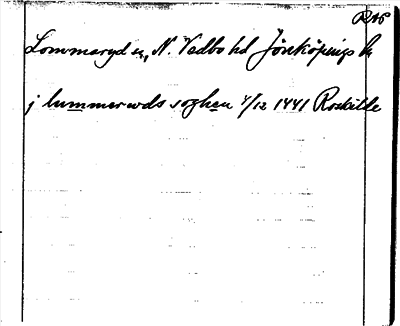 RAP
Lommaryd sn, N. Vedbo hd Jönköpings l.
j lummerwds soghen 4/12 1441 Roskilde